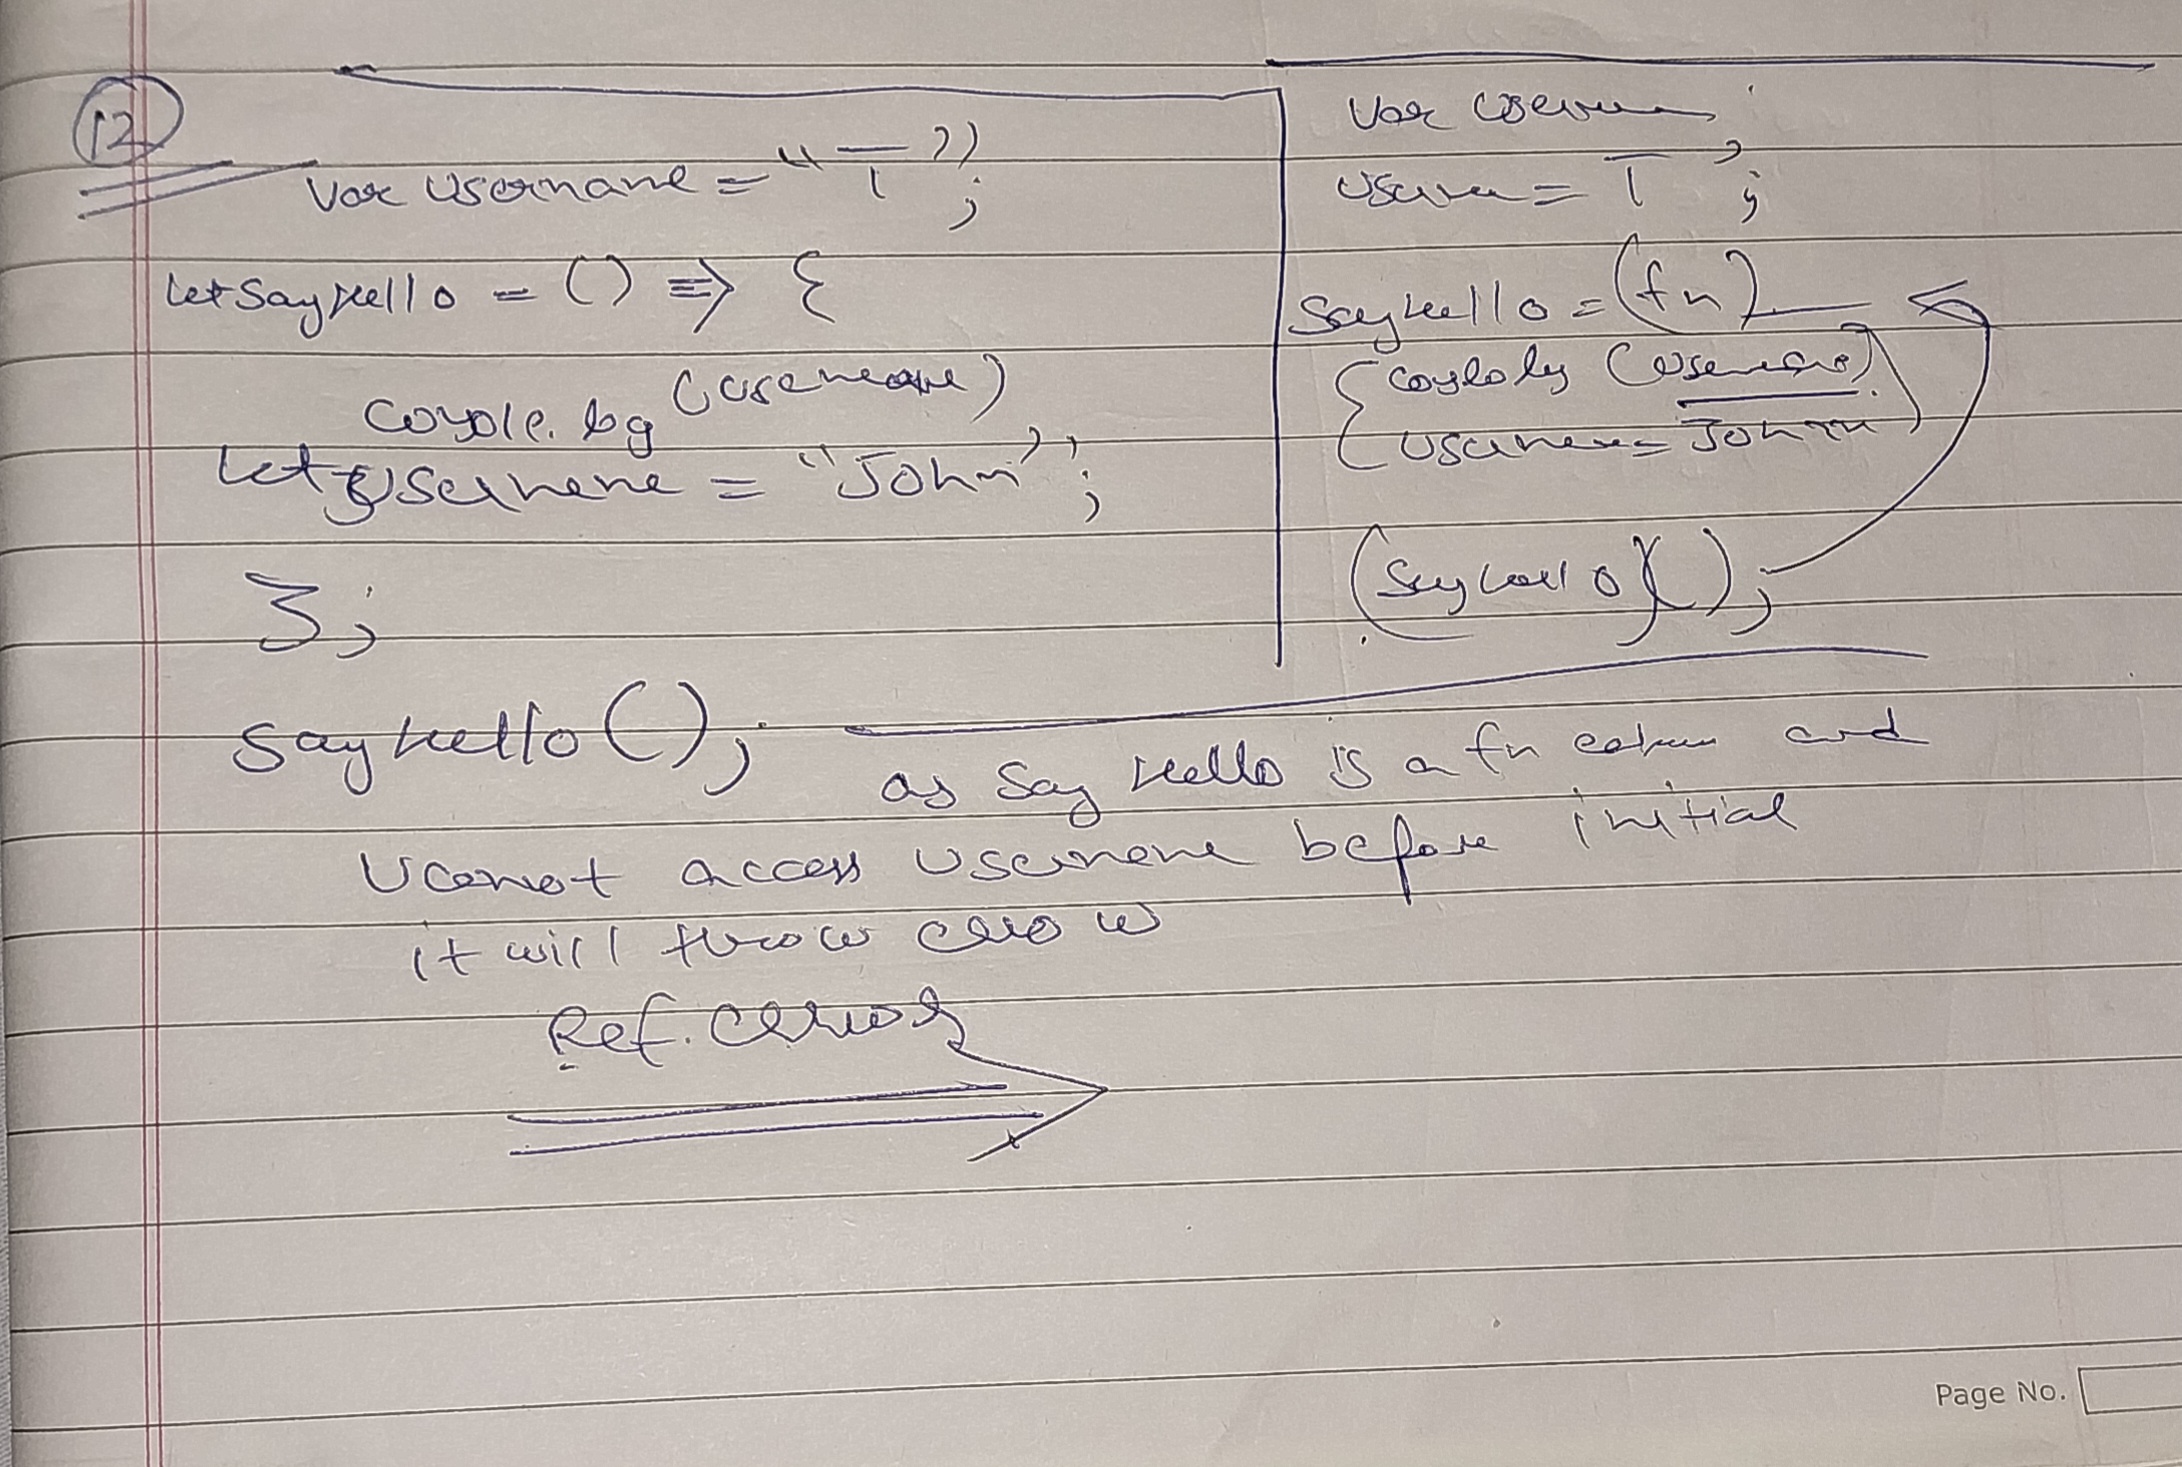 12
var username = "T";
let sayHello = () => {
console.log (username)
let username = "John";
};
sayHello();
var usernam;
usernam = T";
sayhello = (fn)
{ (username)
username = John
(sayhello)();
as say Hello is a fn and
U cannot access username before initial
it will throw
Ref. error
Page No.